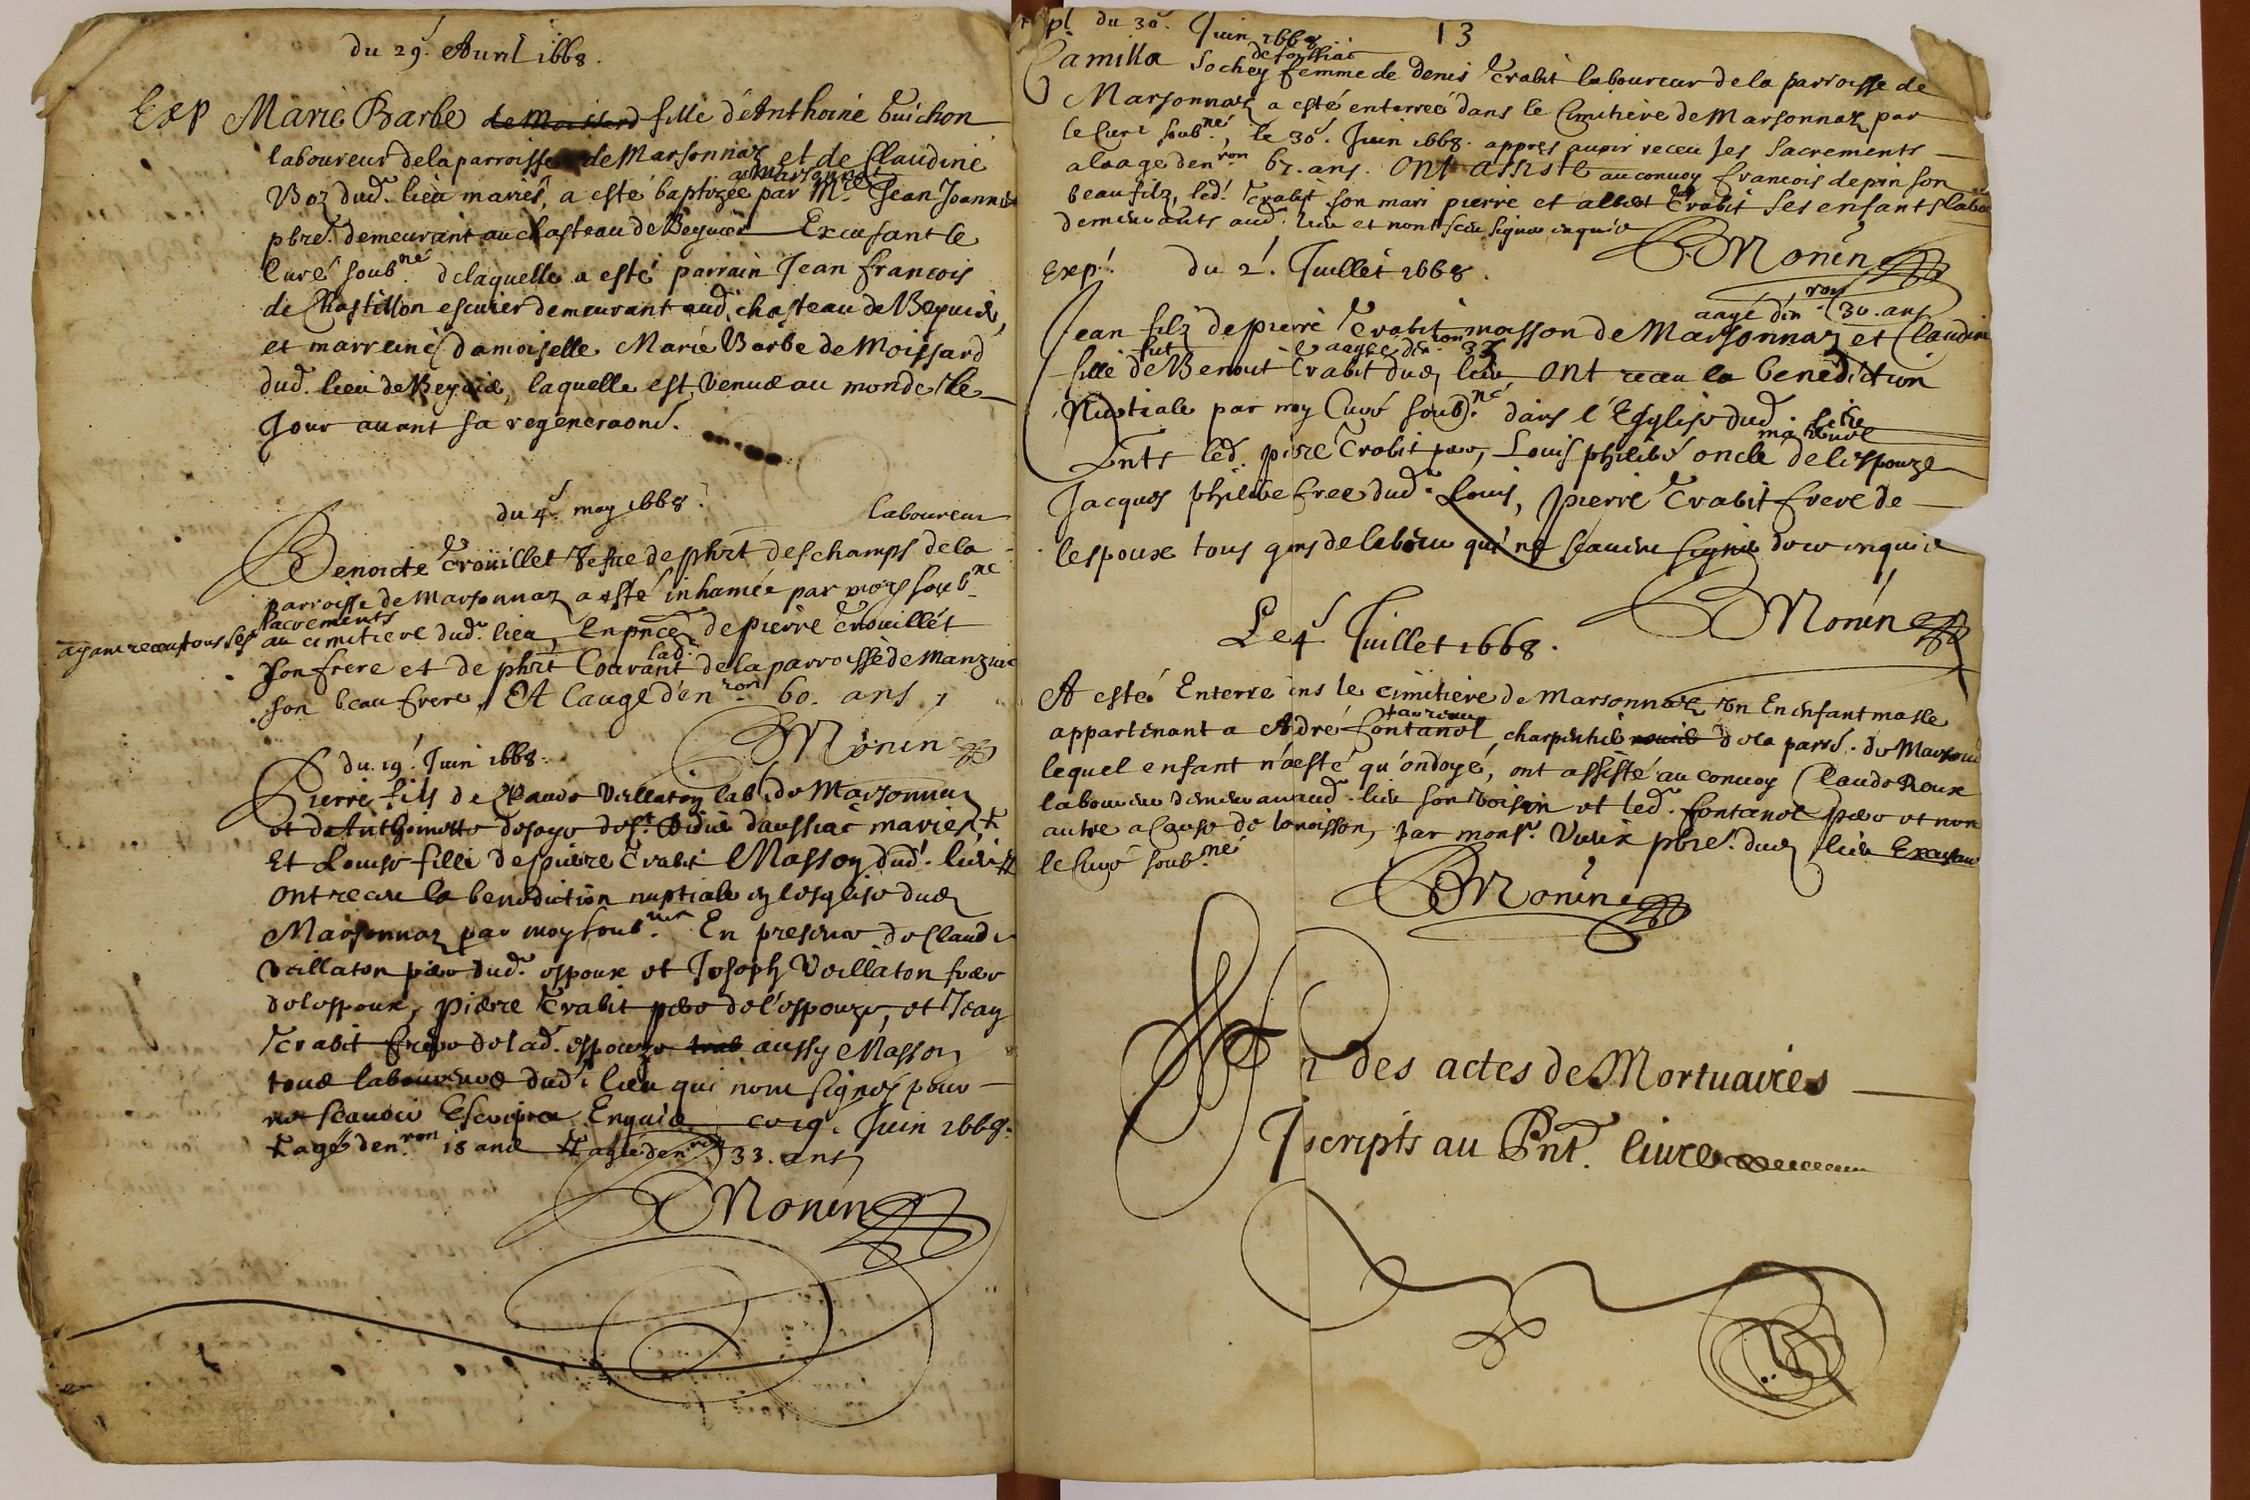 du 29. Auril 1668.
Exp Marie Barbe de Moissard fille d'Anthoine Guichon
laboureur de la parroisse de Marsonnaz et de Claudine
a Marsonnaz
Boz dud. lieu mariés, a esté baptizée par Mre. Jean Joannin
pbre. demeurant au chasteau de Beyuiere Excusant le
Curé soubné delaquelle a esté parrain Jean francois
de Chastillon escuier demeurant aud. chasteau de Beyuiere,
et marreine damoiselle Marie Barbe de Moissard
dud. lieu de Beyuie, laquelle est venue au monde le
Jour auant sa regeneraone.
du 4. may 1668.
laboureur
Benoicte Trouillet vefue de phrt deschamps de la
parroisse de Marsonnaz a esté inhumée par moy soubné
ayant receu tous ses sacrements
au cimitiere dud. lieu, En pnce de pierre Trouillet
son frere et de phrt Couvant de lad. parroisse de Manziat
son beau frere, Et laugé d'enron 60. ans,
Monin
du 19. Juin 1668.
Pierre fils de Claude Vuillaton lab. de Marsonnaz
et de Anthoinette de st Didie daussiac mariés
Et Louise fille de pierre Trabit Masson dud. lieu
Ont receu la benediction nuptiale en lesglise dud
Marsonnaz par moy soubné En presence de Claude
Vuillaton pere dud. espoux et Joseph Vuillaton frere
de lespoux, pierre Trabit pere de l'espouze, et Jean
Trabit frere de lad. espouze aussy Masson
tous laboureurs dud. lieu qui nont signés pour
ne scauoir Escripre Enquis ce 19. Juin 1668.
agé denron 18 ans agée denron 33. ans
Monin
13
pl du 30. Juin 1668
de foissiat
Camilla Sochey femme de denis Trabit laboureur de la parroisse de
Marsonnaz a esté enterrée dans le Cimitiere de Marsonnaz par
le Curé soubné le 30. Juin 1668. appres auoir receu ses sacrements
a laage denron 67. ans. Ont assisté au conuoy francois depin son
beau filz, led. Trabit son mari pierre et Trabit ses enfants labou
demeurants aud. lieu et nont sceu signer enquis
Monin
Exp. du 2. Juillet 1668.
aagé d'enron 30. ans
Jean filz de pierre Trabit masson de Marsonnaz et Claudine
aagée denron
fille de Benoit Trabit dud lieu, Ont receu la benediction
Nuptiale par moy Curé soubné dans l'Esglise dud. lieu
maternel
pnts led. pierre Trabit pere, Louis philibé oncle de l'espouze
Jacques philibe frere dud. Louis, pierre Trabit frere de
lespoux tous gens de labeur qui ne scauent signer de ce enquis
Monin
Le 4 Juillet 1668.
A esté Enterré ins le cimitiere de Marsonnaz Un Enfant masle
appartenant a Adré fontanel charpentié de la parré. de Marsonnaz
lequel enfant n'a esté qu'ondoyé, ont assisté au conuoy Claude Roux
laboureur demeurant aud. lieu son voisin et led. fontanel pere et non
autre a Cause de la moisson, par monsr. Vieux pbre. dud lieu Excusant
le Curé soubné
Monin
Fin des actes de Mortuaires
Jscripts au Pnt. liure